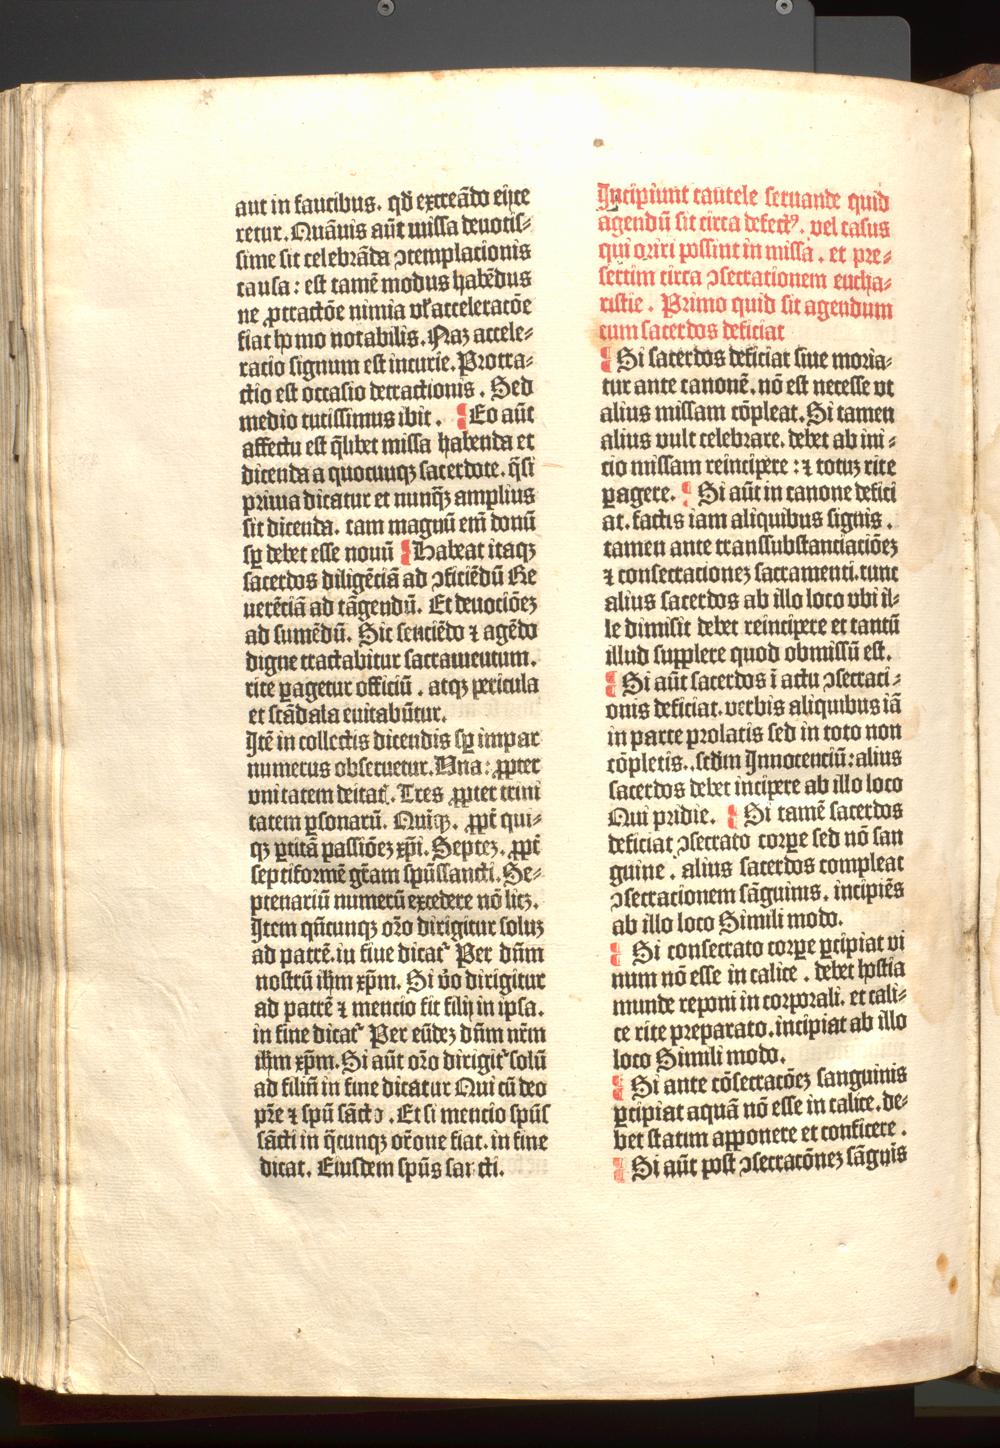 aut in faucibus. qd̕ excreãdo eijce
retur. Quãuis aũt missa deuotis⸗
sime sit celebrãda ↄtemplacionis
causa: est tamẽ modus habẽdus
ne ꝓtractõe nimia vl̕ acceleratõe
fiat hõ mo notabilis. Naʒ accele⸗
racio signum est incurie. Protra⸗
ctio est occasio detractionis. Sed
medio tutissimus ibit. ¶ Eo aũt
affectu est q̃libet missa habenda et
dicenda a quocunqʒ sacerdote. q̃si
prima dicatur et nunq̃ʒ amplius
sit dicenda. tam magnũ em̃ donũ
sꝑ debet esse nouũ ¶ Habeat itaqʒ
sacerdos diligẽciã ad ↄficiẽdũ Re
uerẽciã ad tãgendũ. Et deuociõeʒ
ad sumẽdũ. Sic senciẽdo ⁊ agẽdo
digne tractabitur sacramentum.
rite ꝑagetur officiũ. atqʒ pericula
et scãdala euitabũtur.
Itẽ in collectis dicendis sꝑ impar
numerus obseruetur. Una: ꝓpter
vnitatem deitat͛. Tres ꝓpter trini
tatem ꝑsonarũ. Quĩqʒ. ꝓpt̕ qui⸗
qʒ ꝑtitã passiõeʒ xp̃i. Septeʒ. ꝓpt̕
septiformẽ gr̃am spũssancti. Se⸗
ptenariũ numerũ excedere nõ licʒ.
Item qñcunqʒ orõ dirigitur soluʒ
ad patrẽ. in fine dicat᷑ Per dñm
nostrũ ihm xp̃m. Si v̕o dirigitur
ad patrẽ ⁊ mencio fit filij in ipsa.
in fine dicat᷑ Per eũdeʒ dñm nr̃m
ihm xp̃m. Si aũt orõ dirigit᷑ solũ
ad filiũ in fine dicatur Qui cũ deo
pr̃e ⁊ spũ sãcto. Et si mencio spũs
sãcti in q̃cunqʒ or̃one fiat. in fine
dicat. Eiusdem spũs sancti.
Incipiunt cautele seruande quid
agendũ sit circa defectꝰ. vel casus
qui oriri possint in missa. et pre⸗
sertim circa ↄsecrationem eucha⸗
ristie. Primo quid sit agendum
cum sacerdos deficiat
¶ Si sacerdos deficiat siue moria⸗
tur ante canonẽ. nõ est necesse vt
alius missam cõpleat. Si tamen
alius vult celebrare. debet ab ini⸗
cio missam reincipere: ⁊ totuʒ rite
ꝑagere. ¶ Si aũt in canone defici
at. factis iam aliquibus signis.
tamen ante transsubstanciaciõeʒ
⁊ consecracioneʒ sacramenti. tunc
alius sacerdos ab illo loco vbi il⸗
le dimisit debet reincipere et tantũ
illud supplere quod obmissũ est.
¶ Si aũt sacerdos ĩ actu ↄsecraci⸗
onis deficiat. verbis aliquibus iã
in parte prolatis sed in toto non
cõpletis. scd̃m Innocenciũ: alius
sacerdos debet incipere ab illo loco
Qui pridie. ¶ Si tamẽ sacerdos
deficiat ↄsecrato corpe sed nõ san
guine. alius sacerdos compleat
ↄsecracionem sãguinis. incipiẽs
ab illo loco Simili modo.
¶ Si consecrato corpe ꝑcipiat vi
num nõ esse in calice. debet hostia
munde reponi in corporali. et cali⸗
ce rite preparato. incipiat ab illo
loco Simili modo.
¶ Si ante cõsecracõeʒ sanguinis
ꝑcipiat aquã nõ esse in calice. de⸗
bet statim apponere et conficere.
¶ Si aũt post ↄsecracõneʒ sãguis